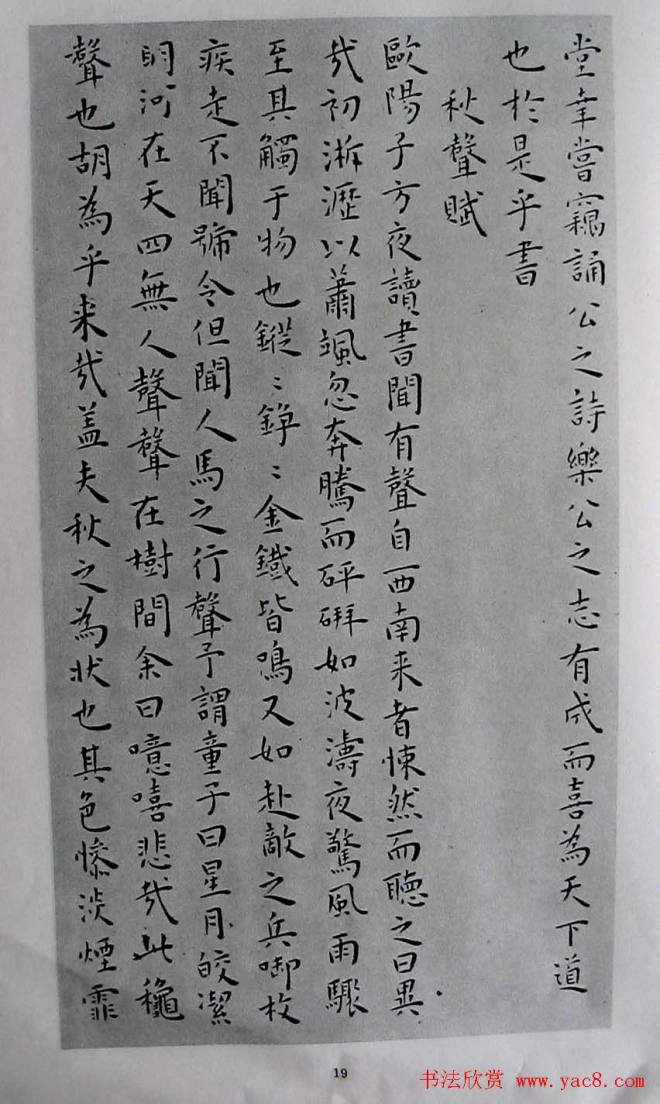 堂幸嘗竊誦公之詩樂公之志有成而喜為天下道
也於是乎書
秋聲賦
歐陽子方夜讀書聞有聲自西南来者悚然而聽之曰異
哉初淅瀝以蕭颯忽奔騰而砰硑如波濤夜驚風雨驟
至其觸于物也鏦〻錚〻金鐵皆鳴又如赴敵之兵啣枚
疾走不聞號令但聞人馬之行聲予謂童子曰星月皎潔
明河在天四無人聲聲在樹間余曰噫嘻悲哉此穐
聲也胡為乎来哉盖夫秋之為状也其色慘淡煙霏
19
书法欣赏 www.yac8.com